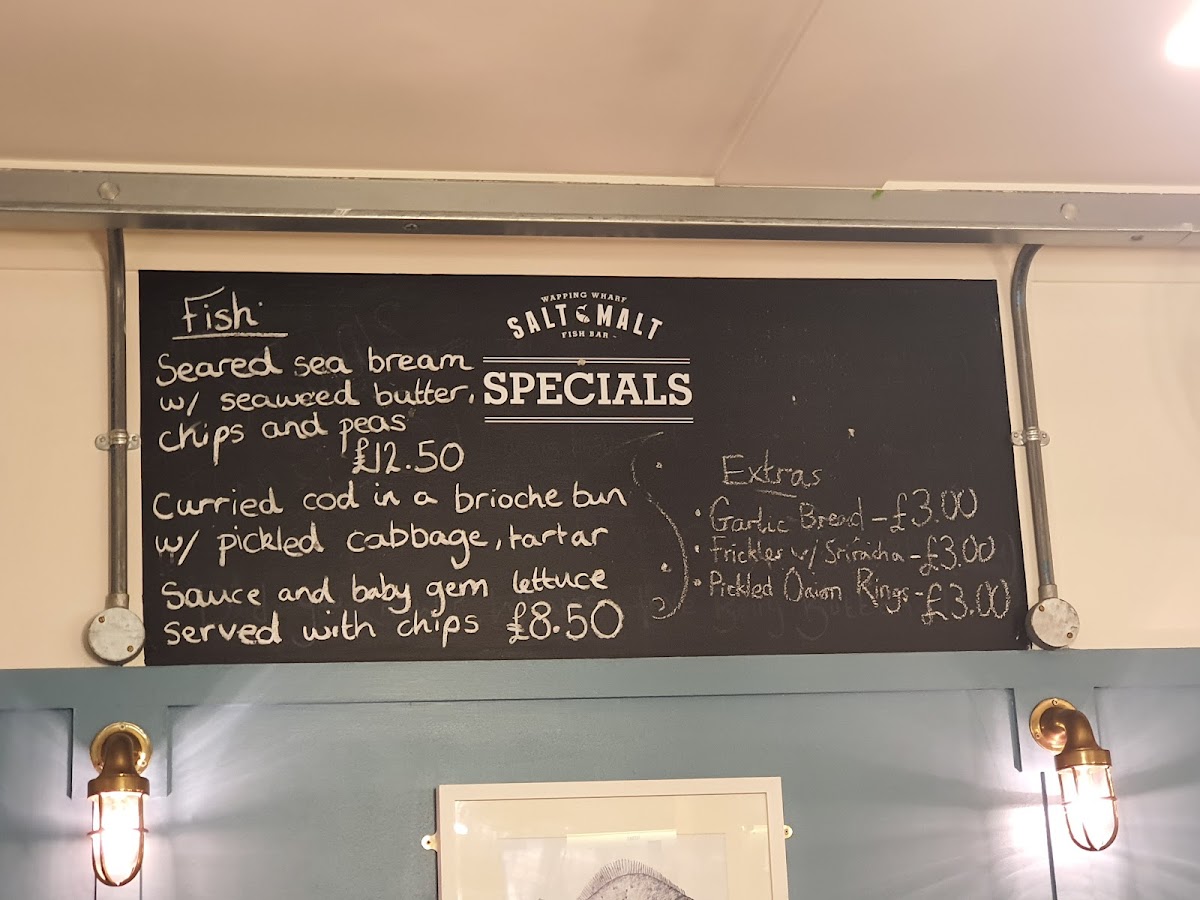 Fish
Seared sea bream
w/ seaweed butter,
chips and peas
£12.50
Curried cod in a brioche bun
w/ pickled cabbage, tartar
Sauce and baby gem lettuce
served with chips £8.50
WAPPING WHARF
SALT & MALT
FISH BAR
SPECIALS
Extras
• Garlic Bread - £3.00
• Frickles w/ Sriracha - £3.00
• Pickled Onion Rings - £3.00